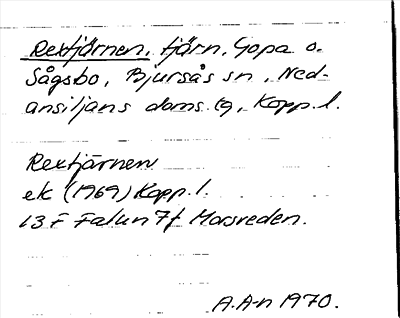 Rextjärnen, tjärn, Gopa o.
Sågsbo, Bjursås sn, Ned-
ansiljans doms. lg, Kopp. l.
Rextjärnen
ek (1969) Kopp. l.
13 F Falun 7f Morsreden.
A.A-n 1970.